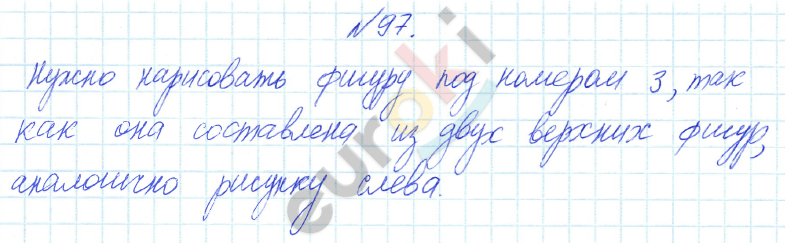 №97.
Нужно нарисовать фигуру под номером 3, так
как она составлена из двух верхних фигур,
аналогично рисунку слева.
euroki